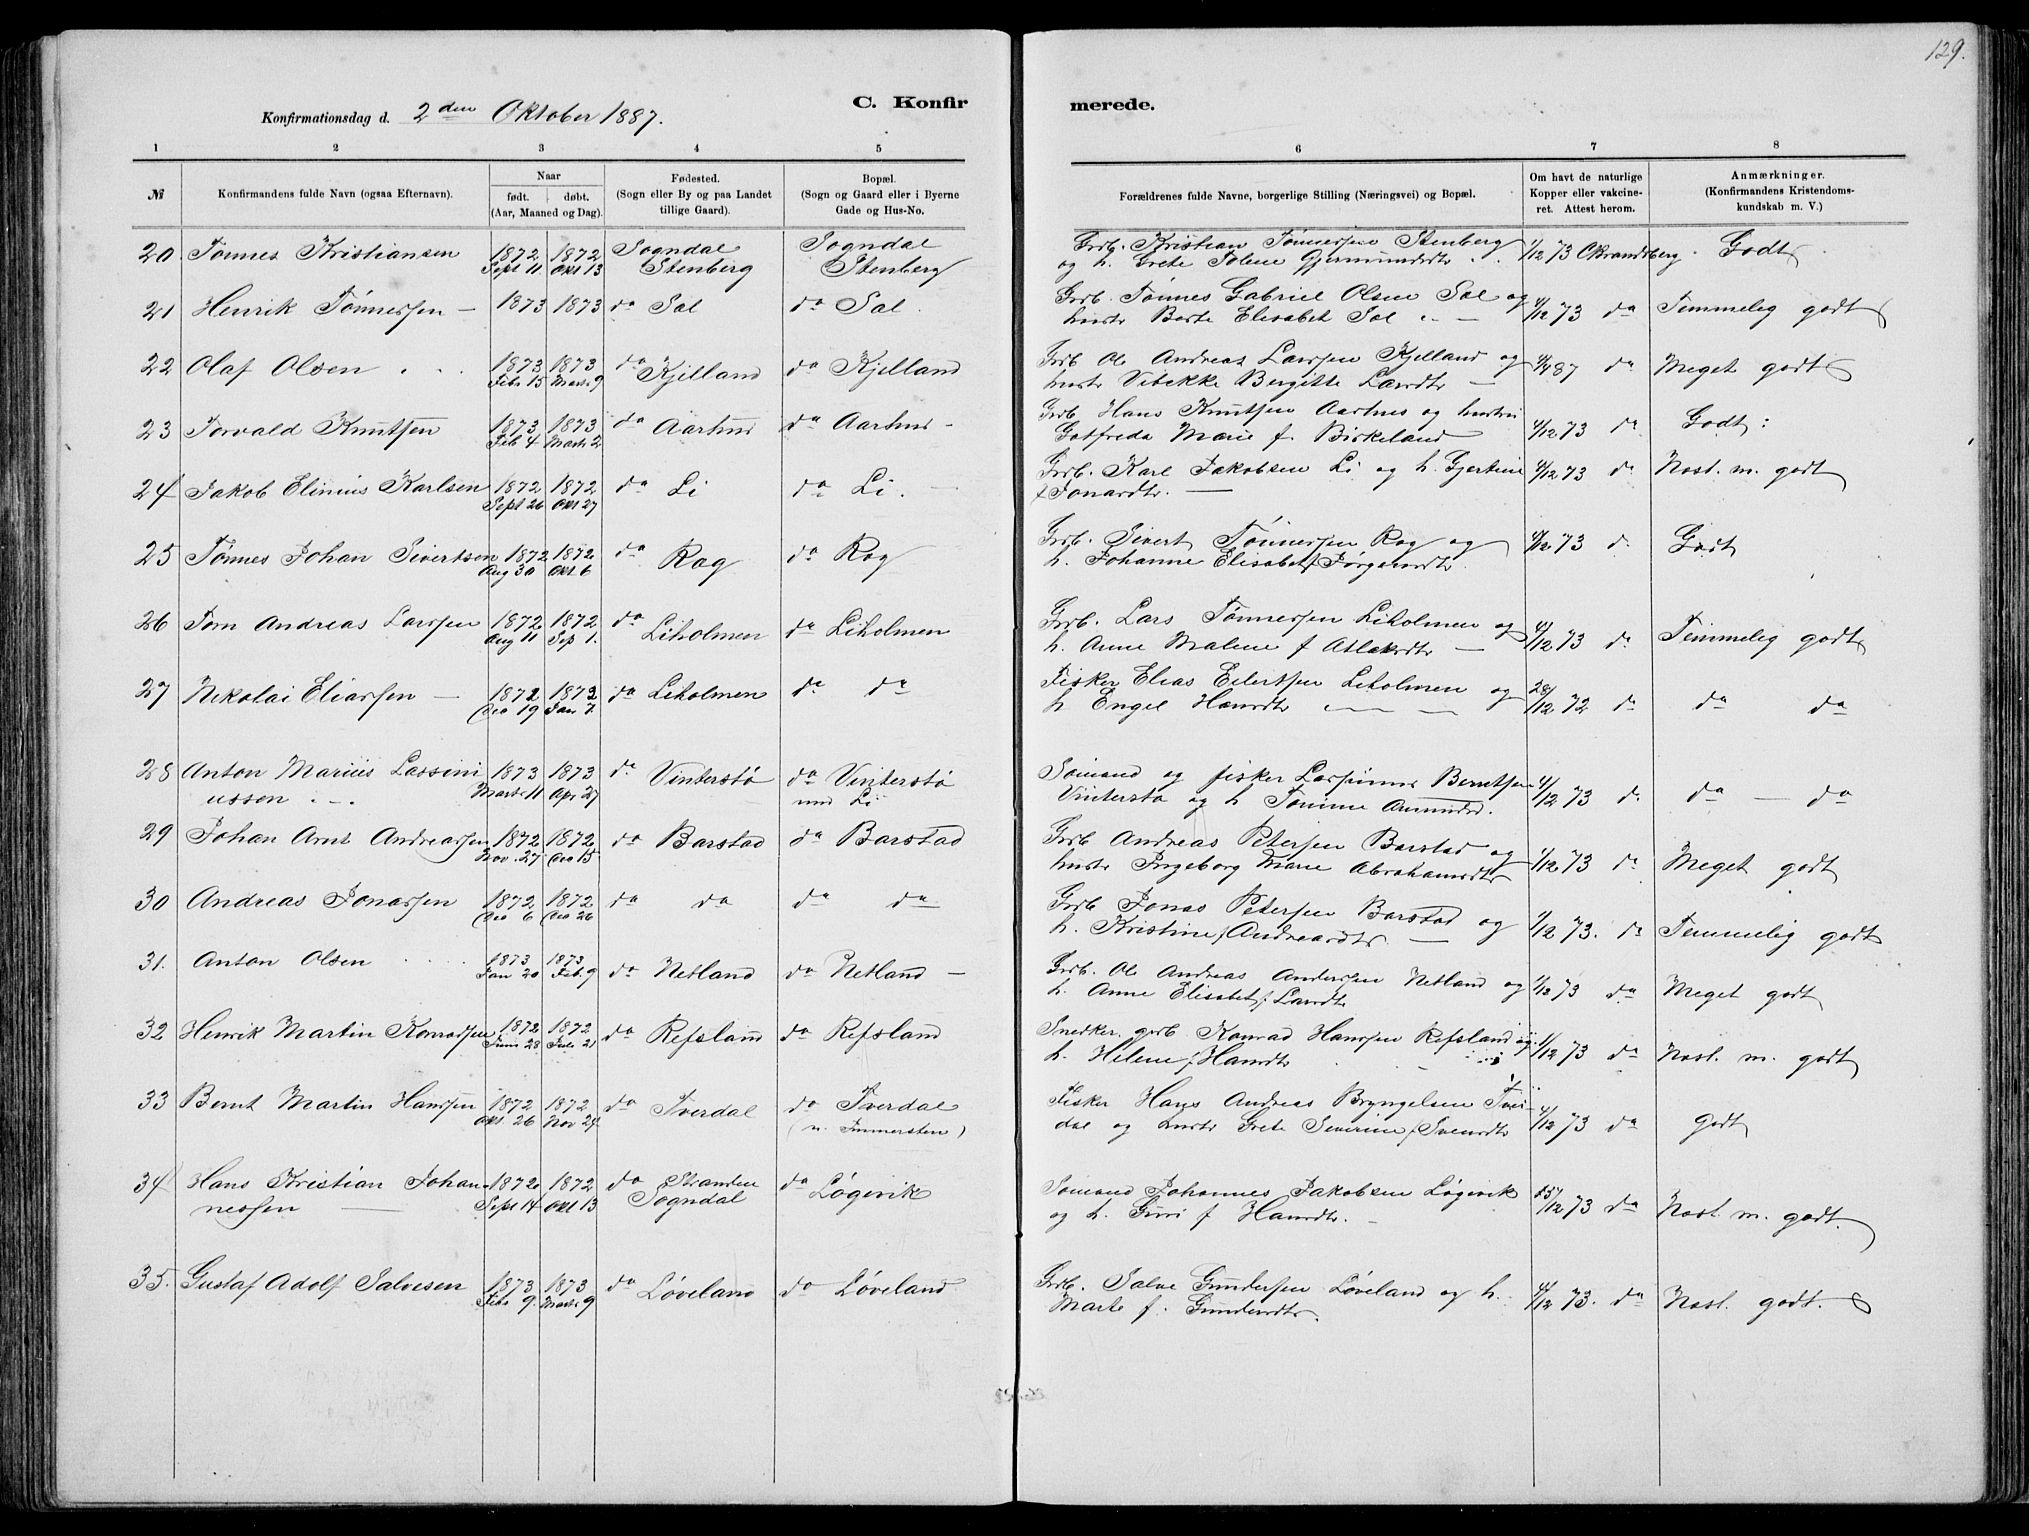 129.
C. Konfirmerede.
Konfirmationsdag d. 2den Oktober 1887.
1 2 3 4 5 6 7 8
№ Konfirmandens fulde Navn (ogsaa Efternavn). Naar født. døbt. (Aar, Maaned og Dag). Fødested. (Sogn eller By og paa Landet tillige Gaard). Bopæl. (Sogn og Gaard eller i Byerne Gade og Hus-No. Forældrenes fulde Navne, borgerlige Stilling (Næringsvei) og Bopæl. Om havt de naturlige Kopper eller vakcineret. Attest herom. Anmærkninger. (Konfirmandens Kristendomskundskab m. V.)
20 Tønnes Kristiansen 1872 Sept 11 1872 Okt 13 Sogndal Stenberg Sogndal Stenberg Grdb. Kristian Tønnessen Stenberg og h. Grete Tolene 1/12 73 Godt
21 Henrik Tønnessen 1873 1873 da Sal da Sal Grdb. Tønnes Gabriel Olsen Sal og hustr Berte Elisabet Sal 4/12 73 da Temmelig godt
22 Olaf Olsen 1873 Feb. 15 1873 Marts 9 da Kjelland da Kjelland Grdb Ole Andreas Larssen Kjelland og hustr Vibekke Bergitte Larsdtr 87 da Meget godt
23 Torvald Knutsen 1873 Feb 4 1873 Marts 2 da Aarhus da Aarhus Grdb Hans Knutsen Aarhus og hustru Gotfreda Marie f. Birkeland 4/12 73 da Godt
24 Jakob Elinius Karlsen 1872 Sept 26 1872 Okt 27 da Li da Li. Grdb. Karl Jakobsen Li og h. Gjertine f Jonasdtr. 4/12 73 da Nost. m. godt
25 Tønnes Johan Sivertsen 1872 Aug 30 1872 Okt 6 da Rog da Rog Grdb. Sivert Tønnessen Rog og h. Johanne Elisabet f Jørgensdtr. 4/12 73 da Godt
26 Tørn Andreas Larssen 1872 Aug 11 1872 Sep 1. da Liholmen da Liholmen Grdb. Lars Tønnessen Liholmen og h. Anne Malene f Atlaksdtr 4/12 73 da Temmelig godt
27 Nikolai Eliassen 1872 Dec 19 1873 Jan 7. da Liholmen da da Fisker Elias Eilertsen Liholmen og h Engel Hansdtr 28/12 72 da da da
28 Anton Mariüs Lassiniussen 1873 Marts 11 1873 Apr 27 da Vinterstø da Vinterstø und Li Sømand og fisker Lassinius Berntsen Vinterstø og h Tomine Aamundsd. 4/12 73 da da da
29 Johan Arnt Andreassen 1872 Nov. 27 1872 Dec 15 da Barstad da Barstad Grdb Andreas Petersen Barstad og hustr Ingeborg Marie Abrahamsdtr 1/12 73 da Meget godt
30 Andreas Jonassen 1872 Dec 6 1872 Dec 26 da da da da Grdb Jonas Petersen Barstad og h. Kristine f Andreasdtr. 1/12 73. da Temmelig godt
31. Anton Olsen 1873 Jan 20 1873 Feb. 9 da Netland da Netland Grdb. Ole Andreas Anderssen Netland og h. Anne Elisabet f. Larsdtr 1/12 73 da Meget godt
32 Henrik Martin Konradsen 1872 Juni 28 1872 Juli 21 da Refsland da Refsland Snedker. grdb Konrad Hanssen Refsland og h. Helene f Hansdtr 1/12 73 da Nost. m. godt
33 Bernt Martin Hanssen 1872 Okt 26 1872 Nov 24 da Tverdal da Tverdal (n. Immersten) Fisker Hans Andreas Bryngelsen Tverdal og hustr Grete Severine f Svensdtr 4/12 73 da godt
34 Hans Kristian Johannessen 1872 Sept 14 1872 Okt 13 da Stranden Sogndal da Løgevik Sømand Johannes Jakobsen Løgevik og h. Guri f Hansdtr. 15/12 73 da Nost. m. godt.
35. Gustaf Adolf Salvesen 1873 Feb 9. 1873 Marts 9 da Løveland da Løveland Grdb. Salve Gundersen Løveland og h. Marte f. Gundersdtr. 4/12 73. da Nost. godt.